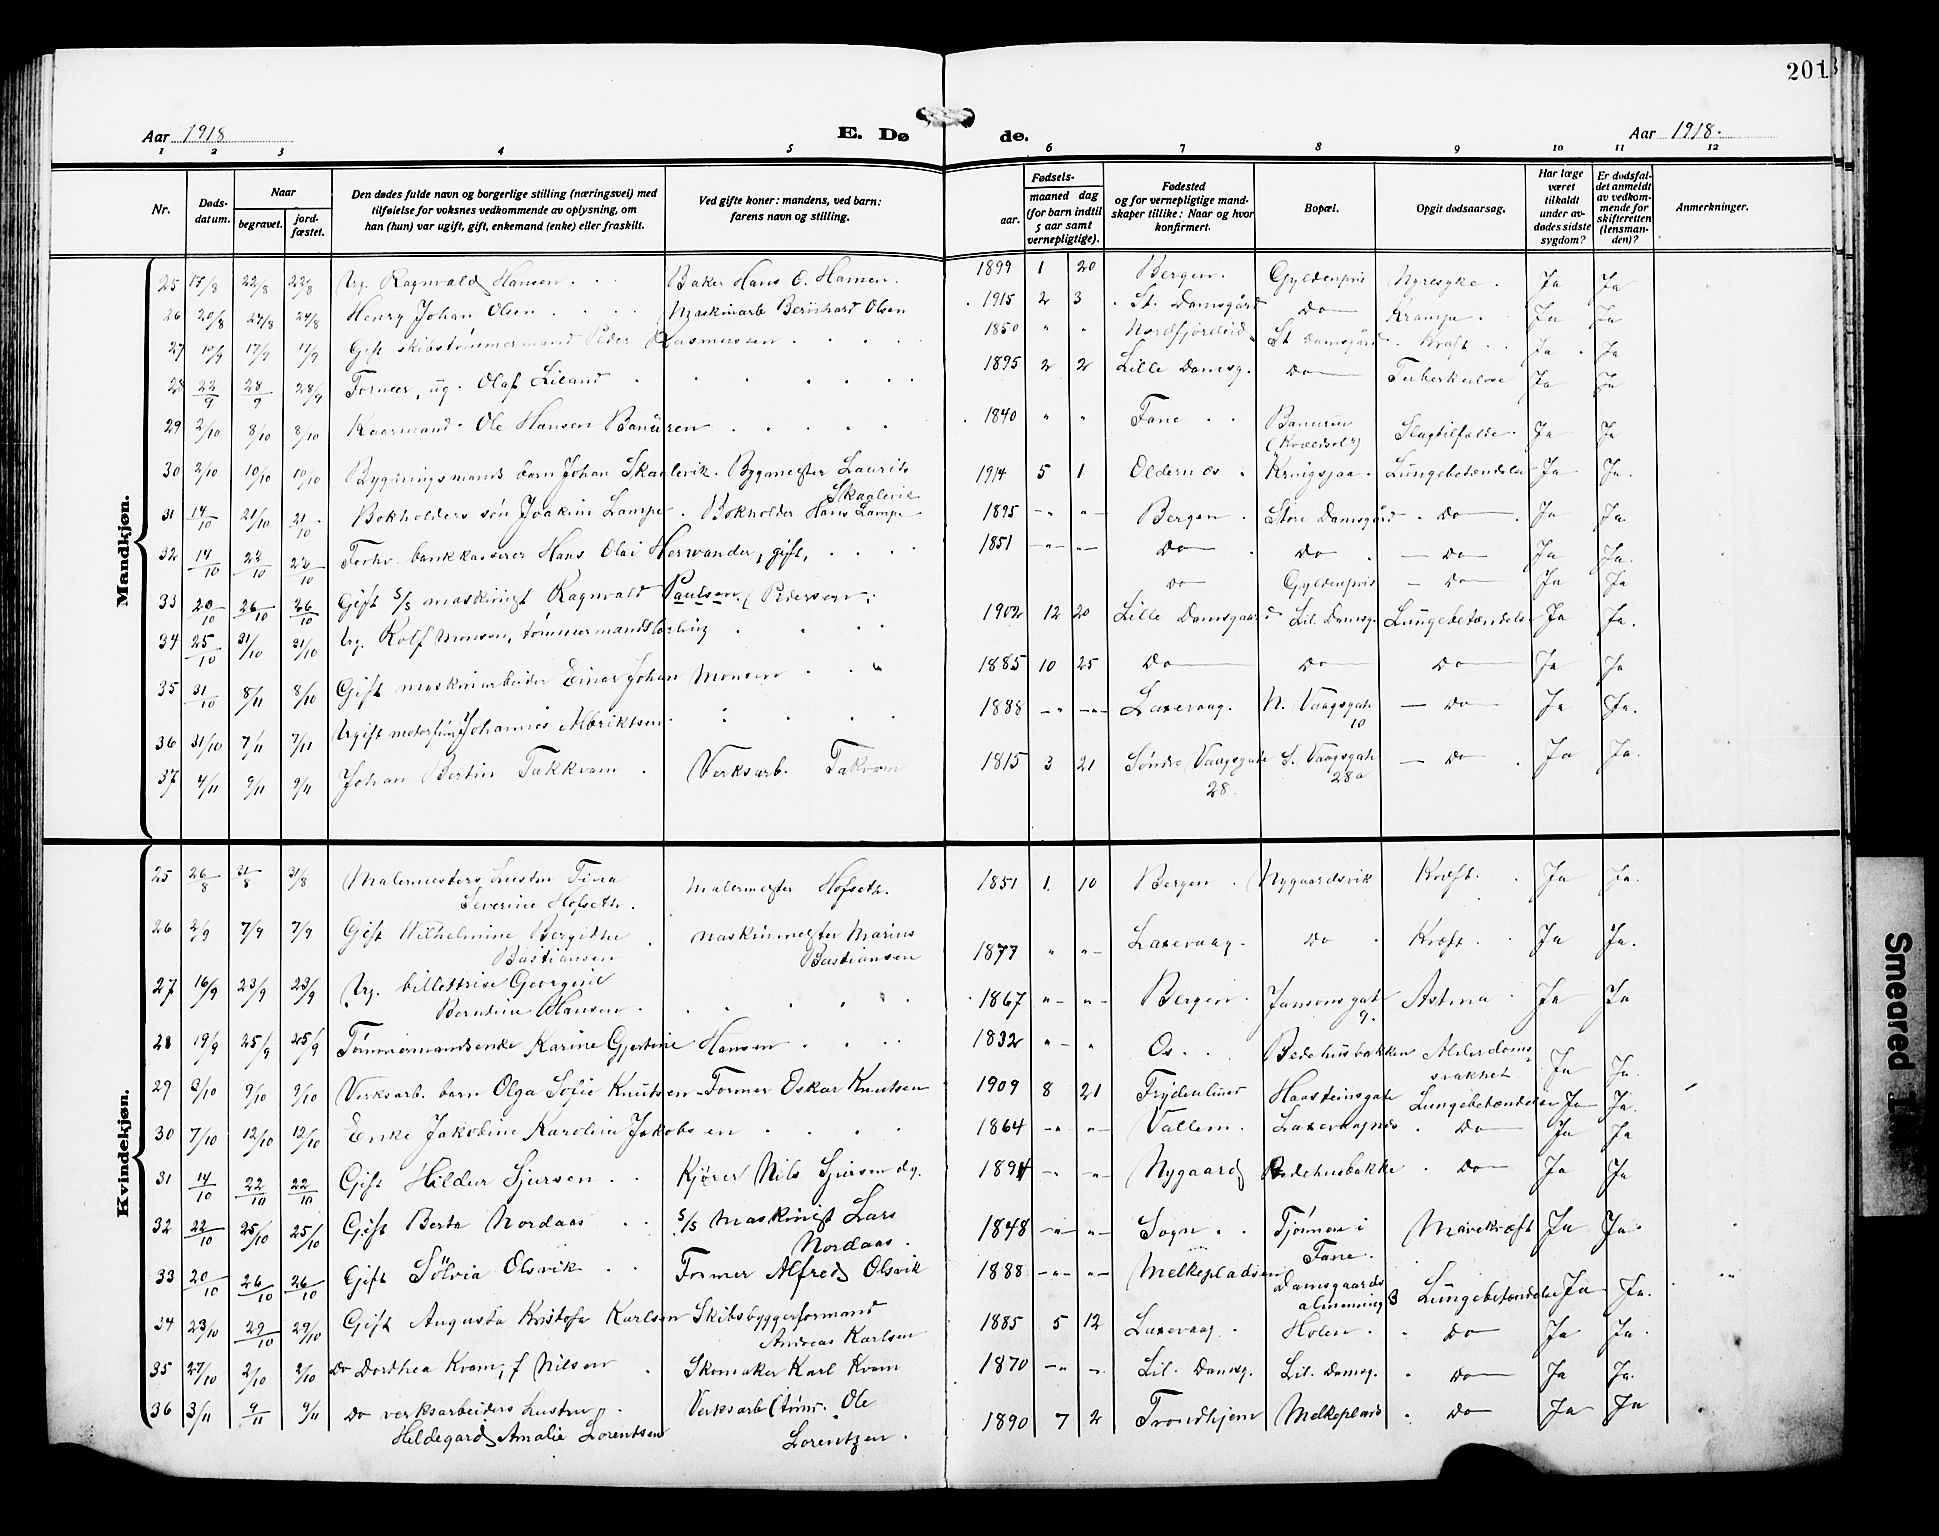 201
Aar 1918
E. Døde.
Aar 1918.
1 2 3 4 5 6 7 8 9 10 11 12
Nr.
Døds-datum.
Naar
begravet.
jord-fæstet.
Den dødes fulde navn og borgerlige stilling (næringsvei) med tilføielse for voksnes vedkommende av oplysning, om han (hun) var ugift, gift, enkemand (enke) eller fraskilt.
Ved gifte koner: mandens, ved barn: farens navn og stilling.
Fødsels-
aar.
maaned dag
(for barn indtil 5 aar samt vernepligtige).
Fødested og for vernepligtige mandskaper tillike: Naar og hvor konfirmert.
Bopæl.
Opgit dødsaarsag.
Har læge været tilkaldt under avdødes sidste sygdom?
Er dødsfaldet anmeldt av vedkommende for skifteretten (lensmanden)?
Anmerkninger.
Mandkjøn.
25 17/8 22/8 22/8 Ug. Ragnvald Hansen. Baker Hans O. Hansen. 1899 1 20 Bergen. Gyldenpris Nyresyke. Ja Ja
26 20/8 24/8 24/8 Henry Johan Olsen Maskinarb Bernhard Olsen 1915 2 3 St. Damsgård Do Krampe. Ja Ja
27 10/9 17/9 17/9 Gift skibstømmermand Peder Rasmussen 1850 " " Nordfjordeid St Damsgård Kræft Ja Ja
28 22/9 28/9 28/9 Former, ug. Olaf Liland 1895 2 2 Lille Damsg. Do Tuberkulose Ja Ja
29 2/10 8/10 8/10 Kaarmand. Ole Hansen Banüren 1840 " " Fane Banuren Slagtilfælde. Ja Ja
30 2/10 10/10 10/10 Bygningsmands barn Johan Skaalevik. Bygmester Laurits Skaalevik 1914 5 1 Oldernes Kringsjaa Lungebetændelse Ja Ja.
31 14/10 21/10 21/10 Bokholders søn Joakim Lampe. Bokholder Hans Lampe 1895 " " Bergen Store Damsgård Do Ja Ja
32 14/10 22/10 22/10 Forhv. bankkasserer Hans Olai Herwander, gift, 1851 " " Do Do Do Ja Ja.
33 20/10 26/10 26/10 Gift S/S maskinist Ragnvald Paulsen (Pedersen) Do Gyldenpris Do Ja Ja
34 25/10 31/10 31/10 Ug. Rolf Monsen, tømmermandslærling 1902 12 20 Lille Damsgaard Lil. Damsg. Lungebetændelse Ja Ja.
35 31/10 8/11 8/10 Gift maskinarbeider Einar Johan Monsen 1885 10 25 Do Do Do Ja Ja
36 31/10 7/11 7/11 Ugift Johannes Albriktsen 1888 " " Laxevaag. N. Vaagsgate 10 Do Ja Ja.
37 4/11 9/11 9/11 Johan Bertin Takkvam Verksarb. Takvam 1815 3 21 Søndre Vaagsgate 28. S. Vaagsgate 28a Do Ja Ja.
Kvindekjøn.
25 26/8 31/8 31/8 Malermesters hustru Tina Severine Hofseth. Malermester Hofseth. 1851 1 10 Bergen Nygaardsvik Kræft. Ja Ja.
26 2/9 7/9 7/9 Gift Wilhelmine Bergithe Bastiansen Maskinmester Marius Bastiansen 1877 " " Laxevaag. Do Kræft. Ja Ja.
27 16/9 23/9 23/9 Ug. billettrise Georgine Berntine Hansen. 1867 " " Bergen. Jansonsgate 9. Astma Ja Ja
28 19/9 25/9 25/9 Tømmermandsenke Karine Gjertine Hansen 1832 " " Os. Bedehusbakken Alderdomssvakhet Ja Ja.
29 2/10 9/10 9/10 Verksarb. barn Olga Sofie Knutsen Former Oskar Knutsen 1909 8 21 Frydenlund Haasteinsgate Lungebetændelse Ja Ja.
30 7/10 12/10 12/10 Enke Jakobine Karoline Jakobsen 1864 " " Vallem. Laxevaagnes Do Ja Ja
31 14/10 22/10 22/10 Gift Hildur Sjursen Kjører Nils Sjursen 1894 " " Nygaard Bedehusbakke Do Ja Ja
32 22/10 25/10 25/10 Gift Berta Nordaas S/S Maskinist Lars Nordaas. 1848 " " Sogn Tjønnen i Fane. Mavekræft Ja Ja.
33 20/10 26/10 26/10 Gift Sölvia Olsvik Former Alfred Olsvik 1888 " " Melkepladsen Damsgaards almenning 3 Lungebetændelse Ja Ja.
34 23/10 29/10 29/10 Gift Augusta Kristofa Karlsen Skibsbyggerformand Andreas Karlsen 1885 5 12 Laxevaag Holen Do Ja Ja.
35 27/10 2/10 2/10 Do Dorthea Kvam, f Nilsen Skomaker Karl Kvam 1870 " " Lil. Damsg. Lil. Damsg. Do Ja Ja.
36 3/11 9/11 9/11 Do verksarbeiders hustru Hildegard Amalie Lorentsen Verksarb (tømr. Ole Lorentzen. 1890 7 2 Trondhjem Melkeplads Do Ja Ja
Smeared